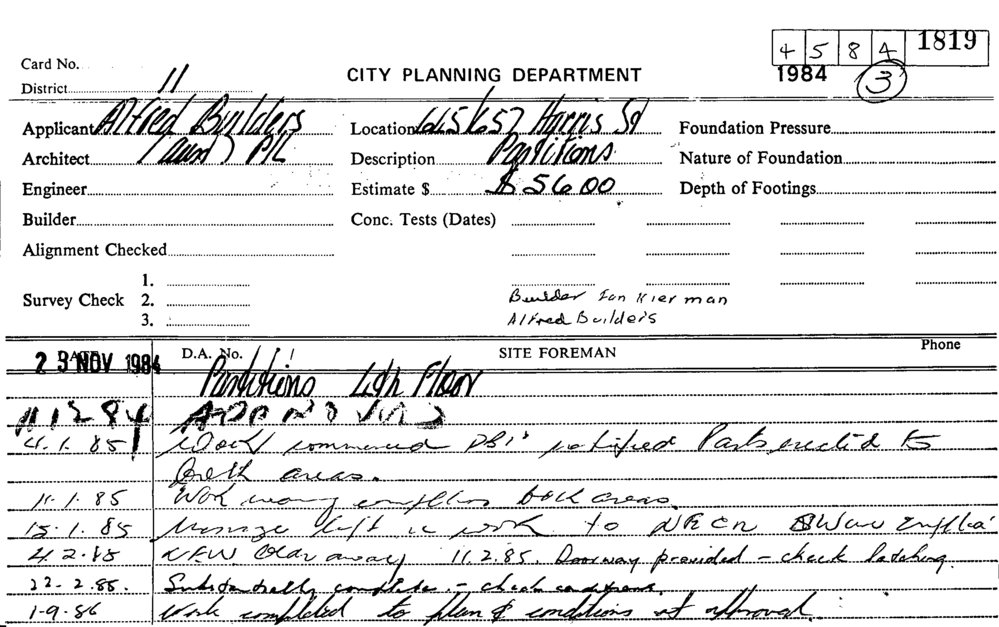 4 5 8 4 1819
1984 3
Card No.
District 11
CITY PLANNING DEPARTMENT
Applicant Alfred Builders
Location 645/657 Harris St
Foundation Pressure
Architect P/L
Description Partitions
Nature of Foundation
Engineer
Estimate $ $5600
Depth of Footings
Builder
Conc. Tests (Dates)
Alignment Checked
Survey Check 1.
2.
3.
Builder Ian Kierman
Alfred Builders
23 NOV 1984
D.A. No.
SITE FOREMAN
Phone
Partitions 4th Floor
11 12 84 APPROVED
4.1.85 Work commenced notified Parts erected to
both areas.
11.1.85 Work both areas
15.1.85 left work to
4.2.85 away 11.2.85. Doorway provided - check latching.
22.2.85. Substantially complete - check
1-9-86 Work completed to plan & conditions of approval.